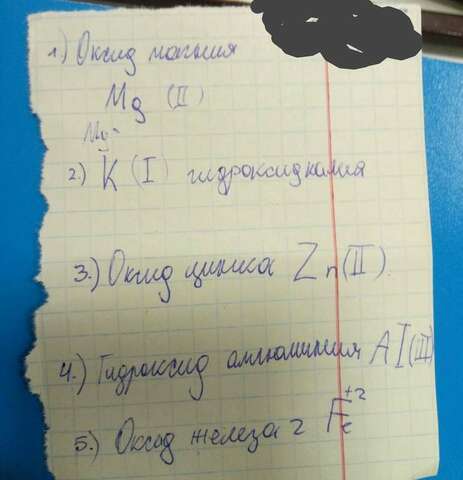 1) Оксид магния
Mg (II)
2.) K (I) гидроксид калия
3.) Оксид цинка Zn (II).
4.) Гидроксид аллюминия Al (III)
5.) Оксид железа 2 Fe +2